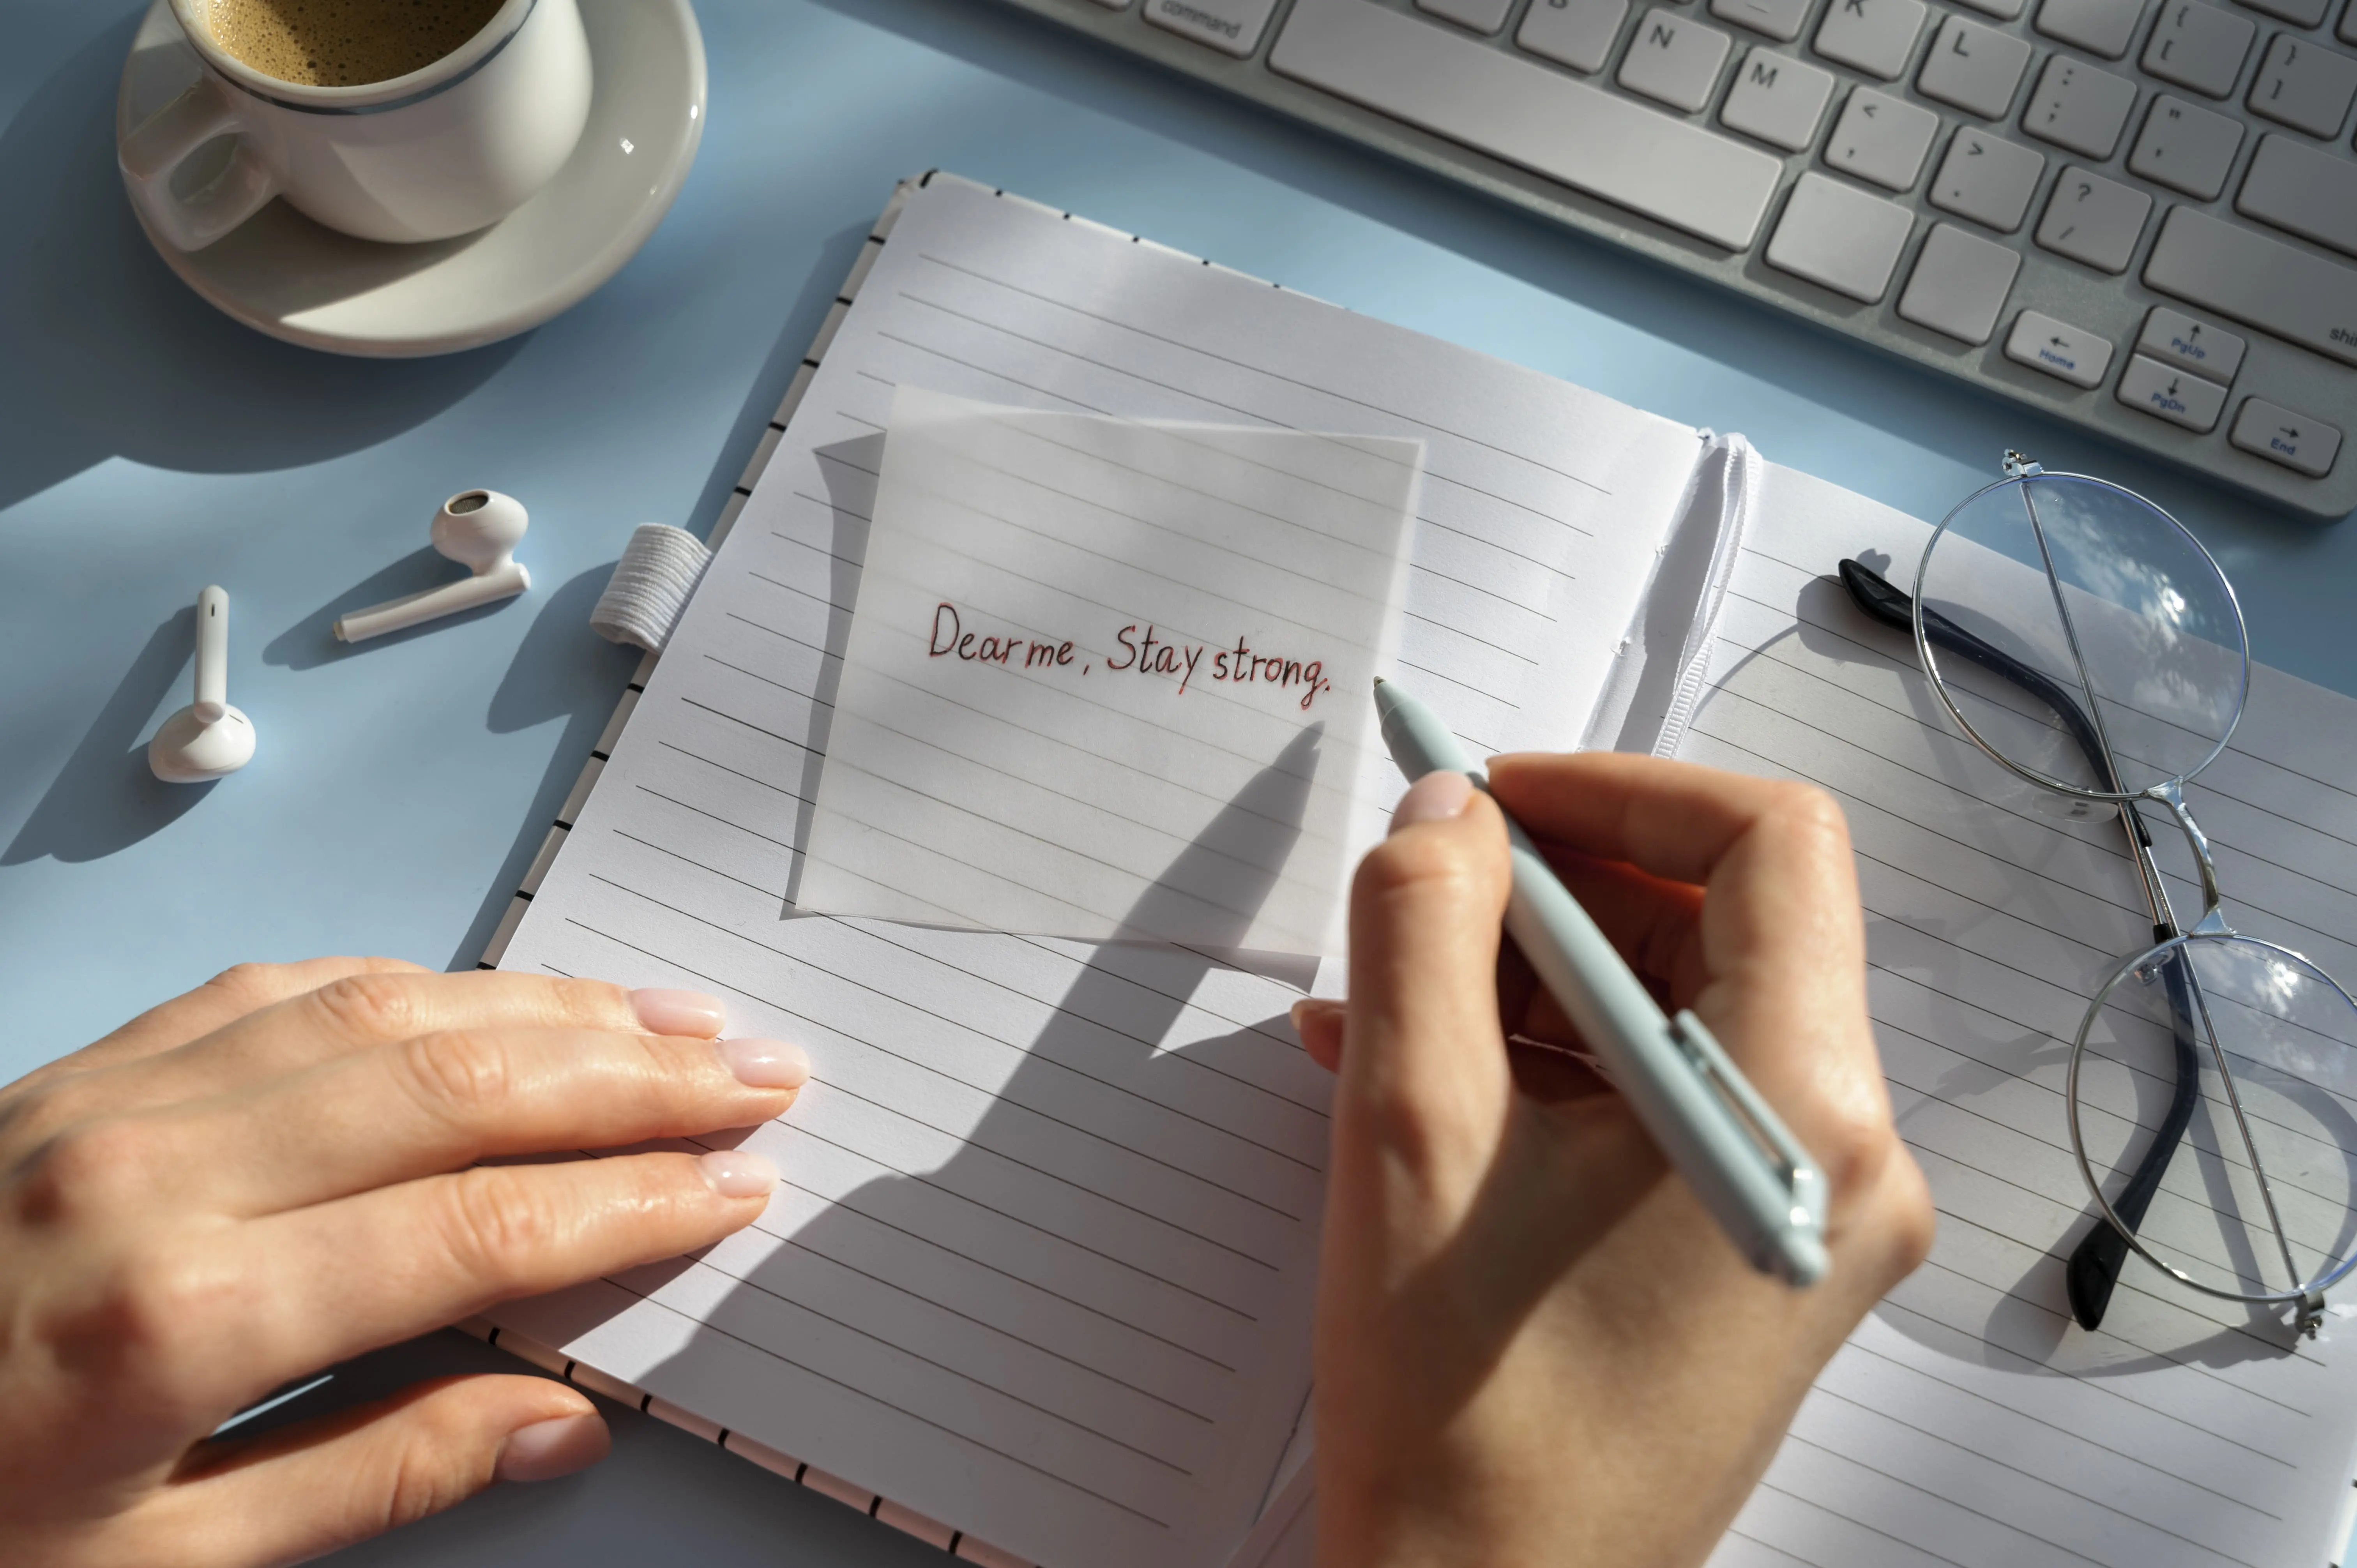 command
B N M K L
< ,
> .
? /
: ;
" '
{ [
} ]
shi
← Home
↑ PgUp
↓ PgDn
→ End
Dear me, Stay strong.